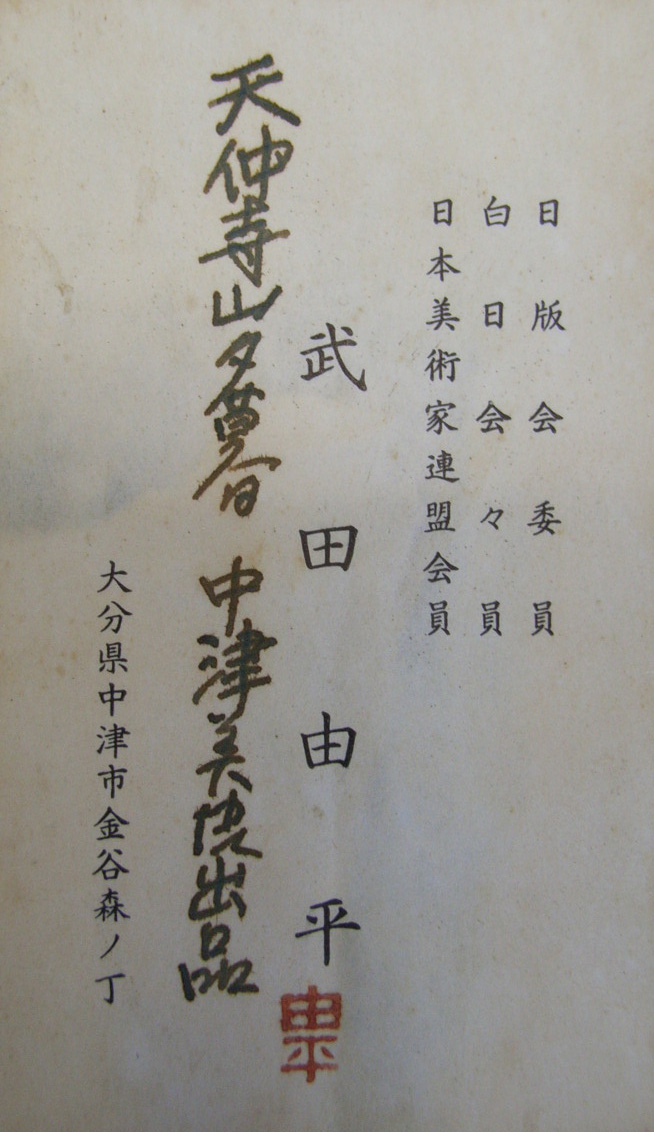 日版会委員
白日会々員
日本美術家連盟会員
武田由平
由平
天仲寺山夕暮 中津美 出品
大分県中津市金谷森ノ丁